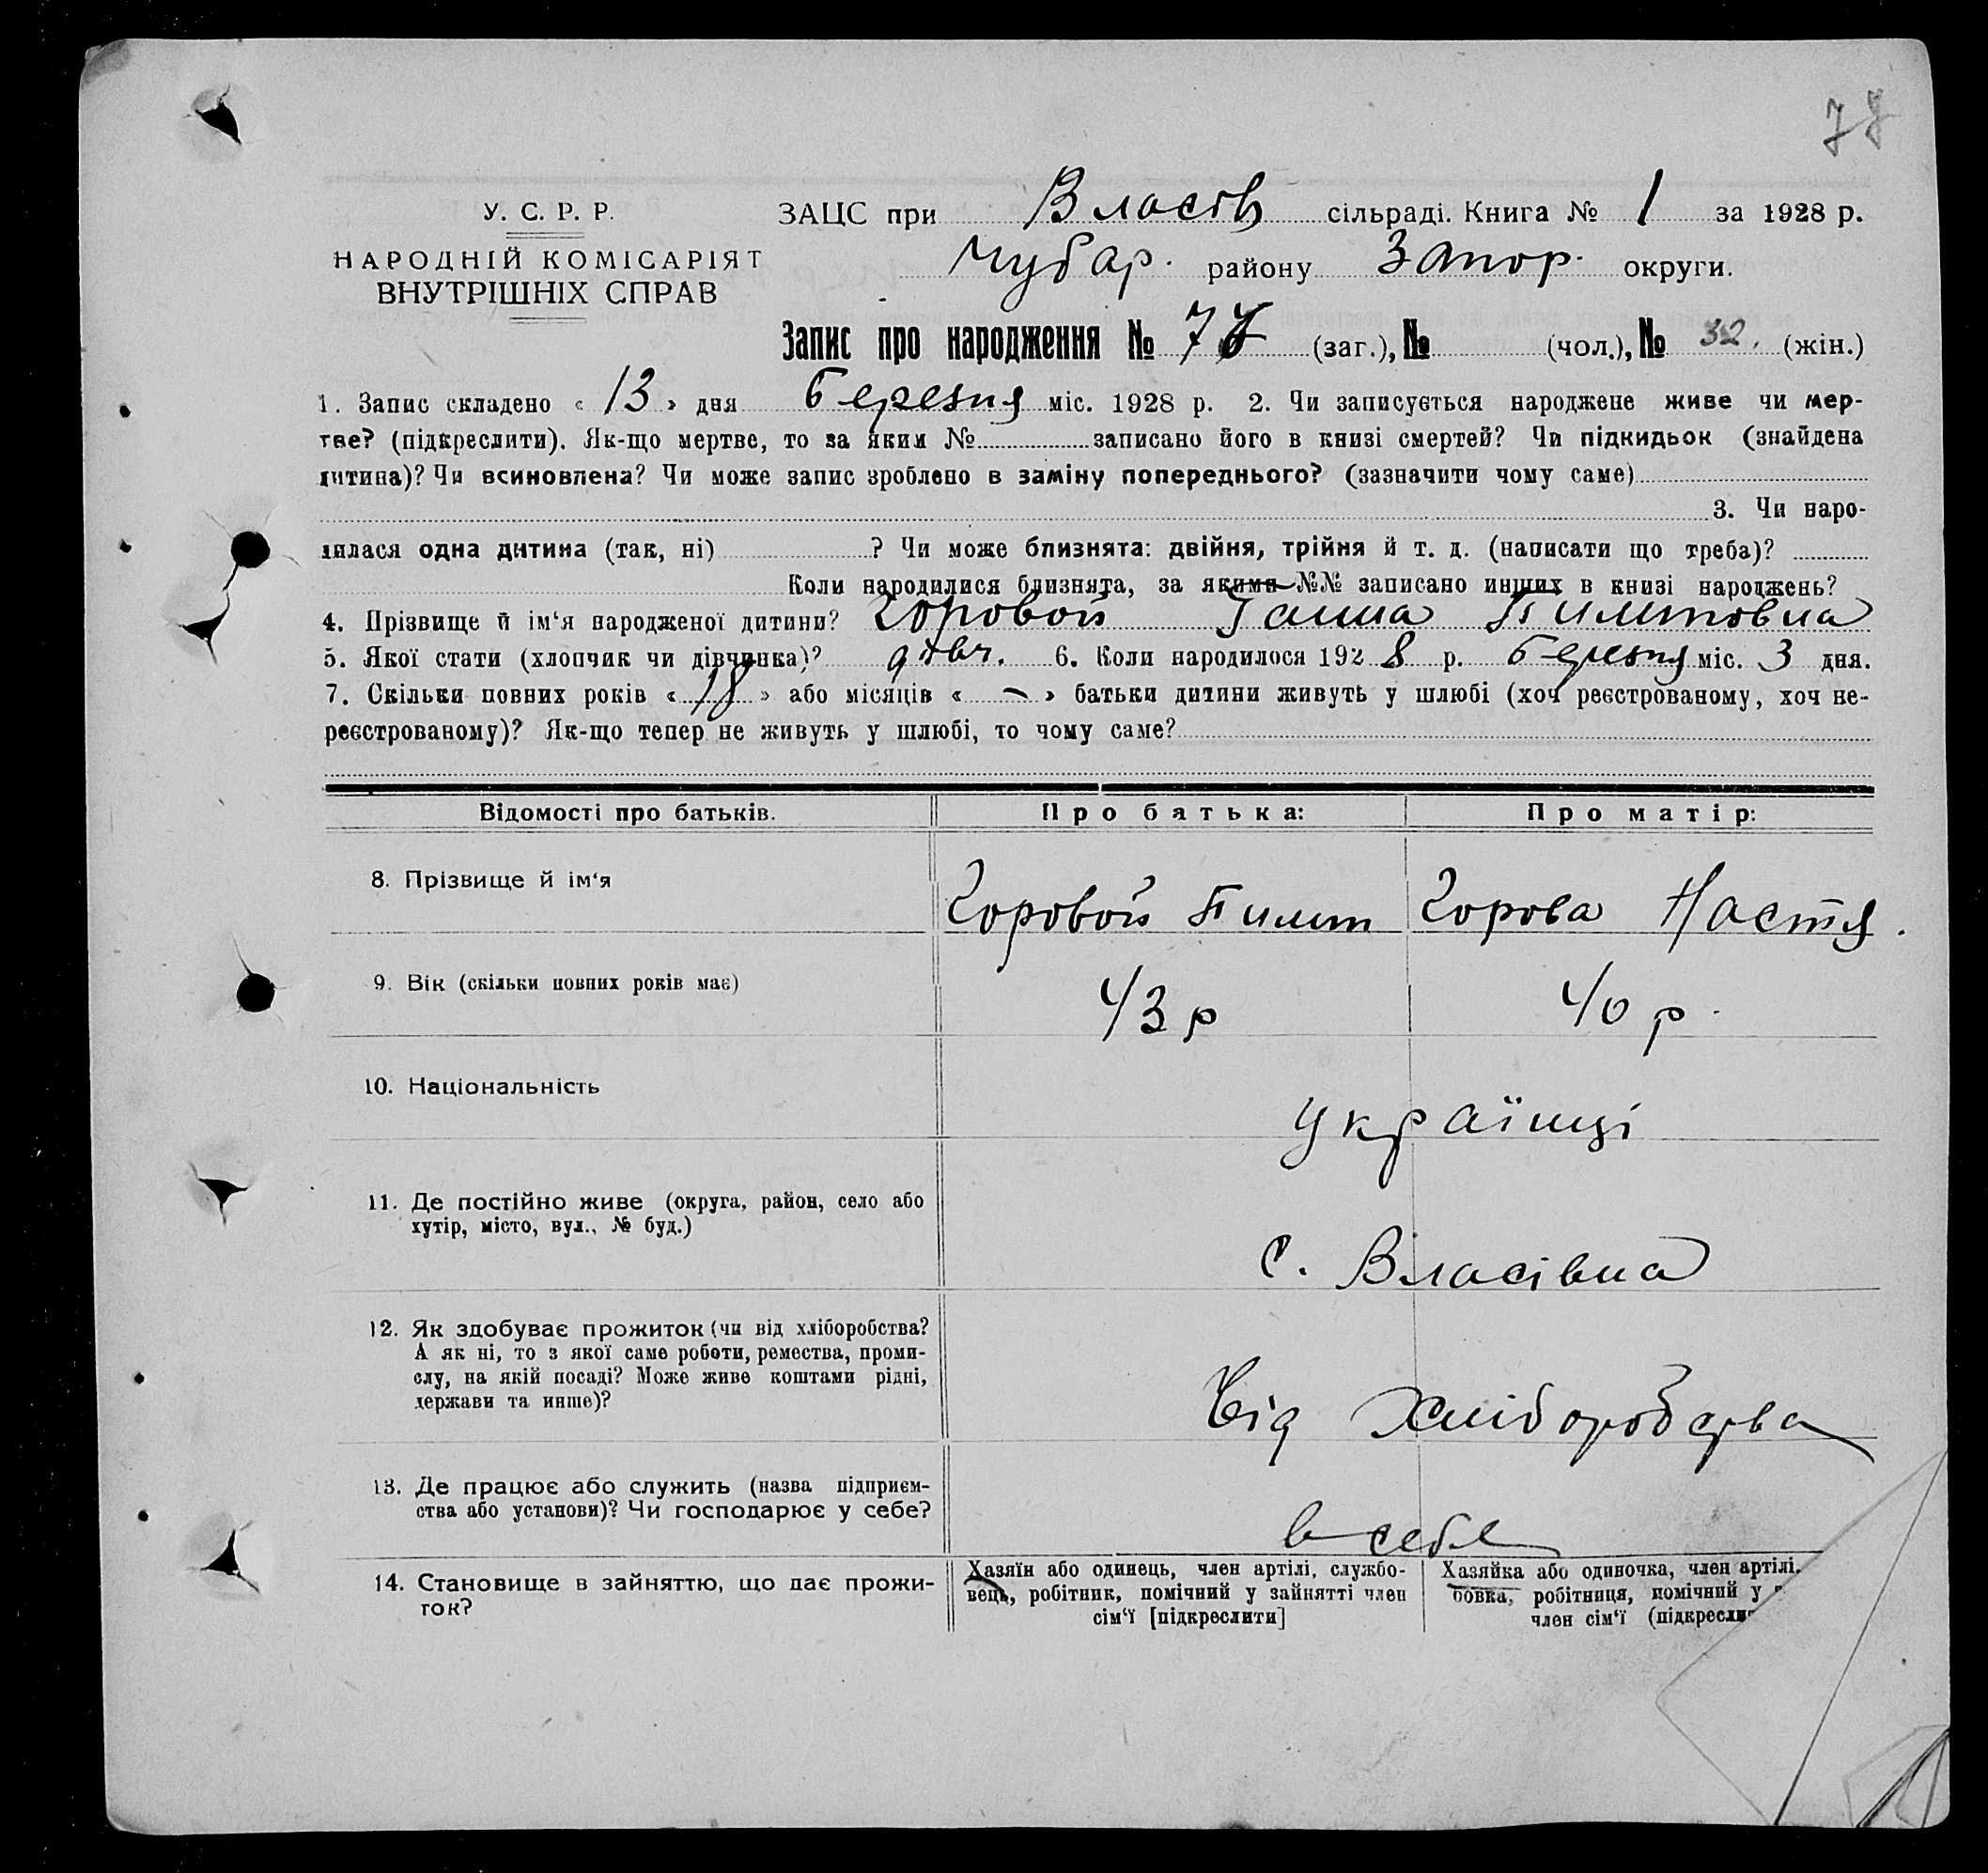 У. С. Р. Р.
НАРОДНІЙ КОМІСАРІЯТ
ВНУТРІШНІХ СПРАВ
ЗАЦС при Власів сільраді. Книга № 1 за 1928 р.
Чубар. району Запор. округи.
Запис про народження № 7 (заг.), № (чол.), № 32. (жін.)
1. Запис складено « 13 » дня березня міс. 1928 р. 2. Чи записується народжене живе чи мер-
тве? (підкреслити). Як-що мертве, то за яким № записано його в книзі смертей? Чи підкидьок (знайдена
дитина)? Чи всиновлена? Чи може запис зроблено в заміну попереднього? (зазначити чому саме)
3. Чи наро-
дилася одна дитина (так, ні) ? Чи може близнята: двійня, трійня й т. д. (написати що треба)?
Коли народилися близнята, за якими №№ записано инших в книзі народжень?
4. Прізвище й ім‘я народженої дитини? Горовой Ганна
5. Якої стати (хлопчик чи дівчинка)? дівч. 6. Коли народилося 1928 р. березня міс. 3 дня.
7. Скільки повних років « 18 » або місяців « – » батьки дитини живуть у шлюбі (хоч реєстрованому, хоч не-
реєстрованому)? Як-що тепер не живуть у шлюбі, то чому саме?
Відомості про батьків. Про батька: Про матір:
8. Прізвище й ім‘я Горовой Горова Настя.
9. Вік (скільки повних років має) 43 р 40 р.
10. Національність українці
11. Де постійно живе (округа, район, село або
хутір, місто, вул., № буд.)
с. Власівка
12. Як здобуває прожиток (чи від хліборобства?
А як ні, то з якої саме роботи, ремества, проми-
слу, на якій посаді? Може живе коштами рідні,
держави та инше)?
Від хліборобства
13. Де працює або служить (назва підприєм-
ства або установи)? Чи господарює у себе?
в себе
14. Становище в зайняттю, що дає прожи-
ток?
Хазяїн або одинець, член артілі, службо-
вець, робітник, помічний у зайнятті член
сім‘ї [підкреслити]
Хазяйка або одиночка, член артілі,
бовка, робітниця, помічний у
член сім‘ї